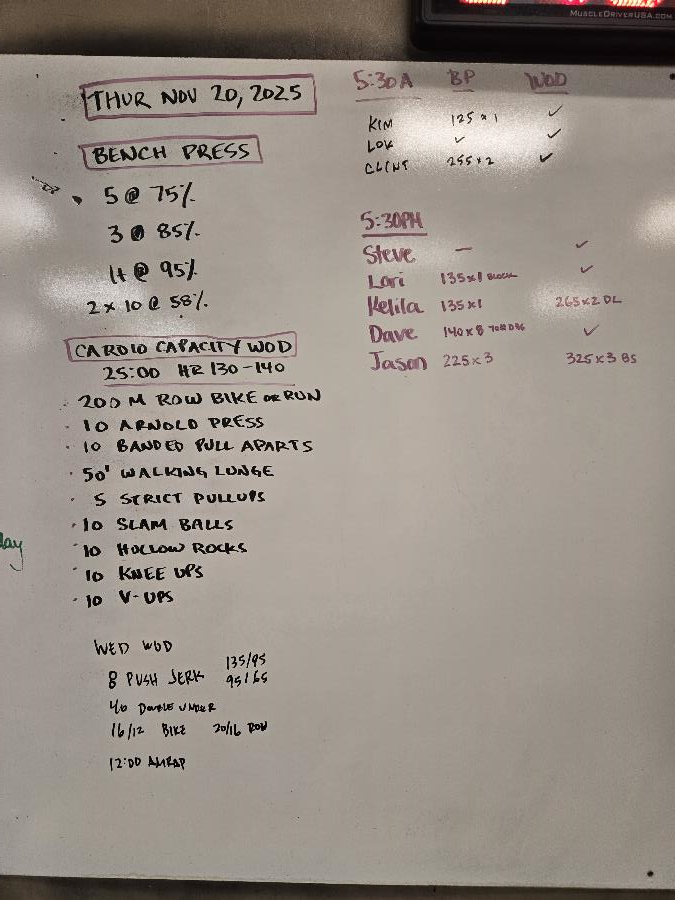 MUSCLEDRIVERUSA.COM
THUR NOV 20, 2025
BENCH PRESS
5 @ 75%
3 @ 85%
1+ @ 95%
2 x 10 @ 58%
CARDIO CAPACITY WOD
25:00 HR 130-140
200 M ROW BIKE OR RUN
10 ARNOLD PRESS
10 BANDED PULL APARTS
50' WALKING LUNGE
5 STRICT PULLUPS
10 SLAM BALLS
10 HOLLOW ROCKS
10 KNEE UPS
10 V-UPS
WED WOD
135/95
8 PUSH JERK 95/65
40 DOUBLE UNDER
16/12 BIKE 20/16 ROW
12:00 AMRAP
5:30A BP WOD
KIM 125 x 1 ✓
LOU ✓ ✓
CLINT 255 x 2 ✓
5:30PM
Steve — ✓
Lori 135x1 BLOCK ✓
Kelila 135x1 265x2 DL
Dave 140x8 ✓
Jason 225x3 325x3 BS